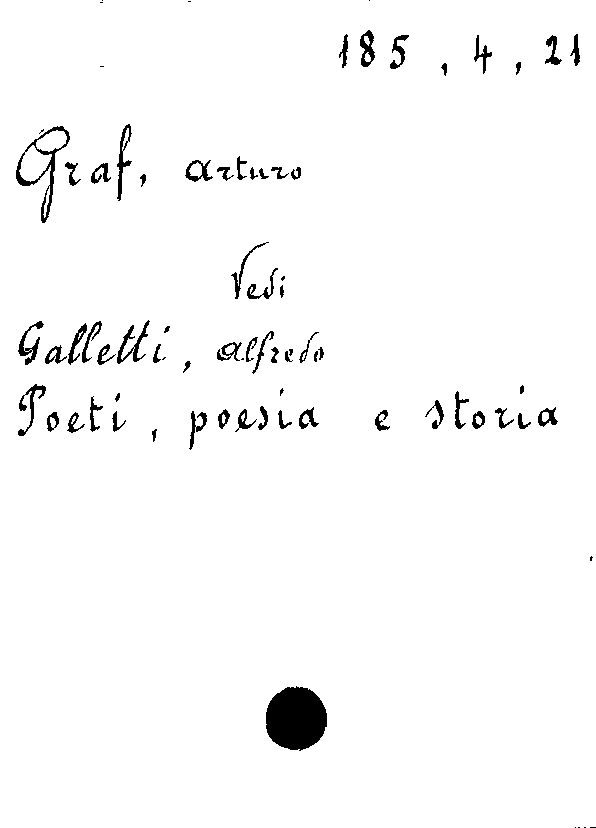 185, 4, 21
Graf, Arturo
Vedi
Galletti, Alfredo
Poeti, poesia e storia